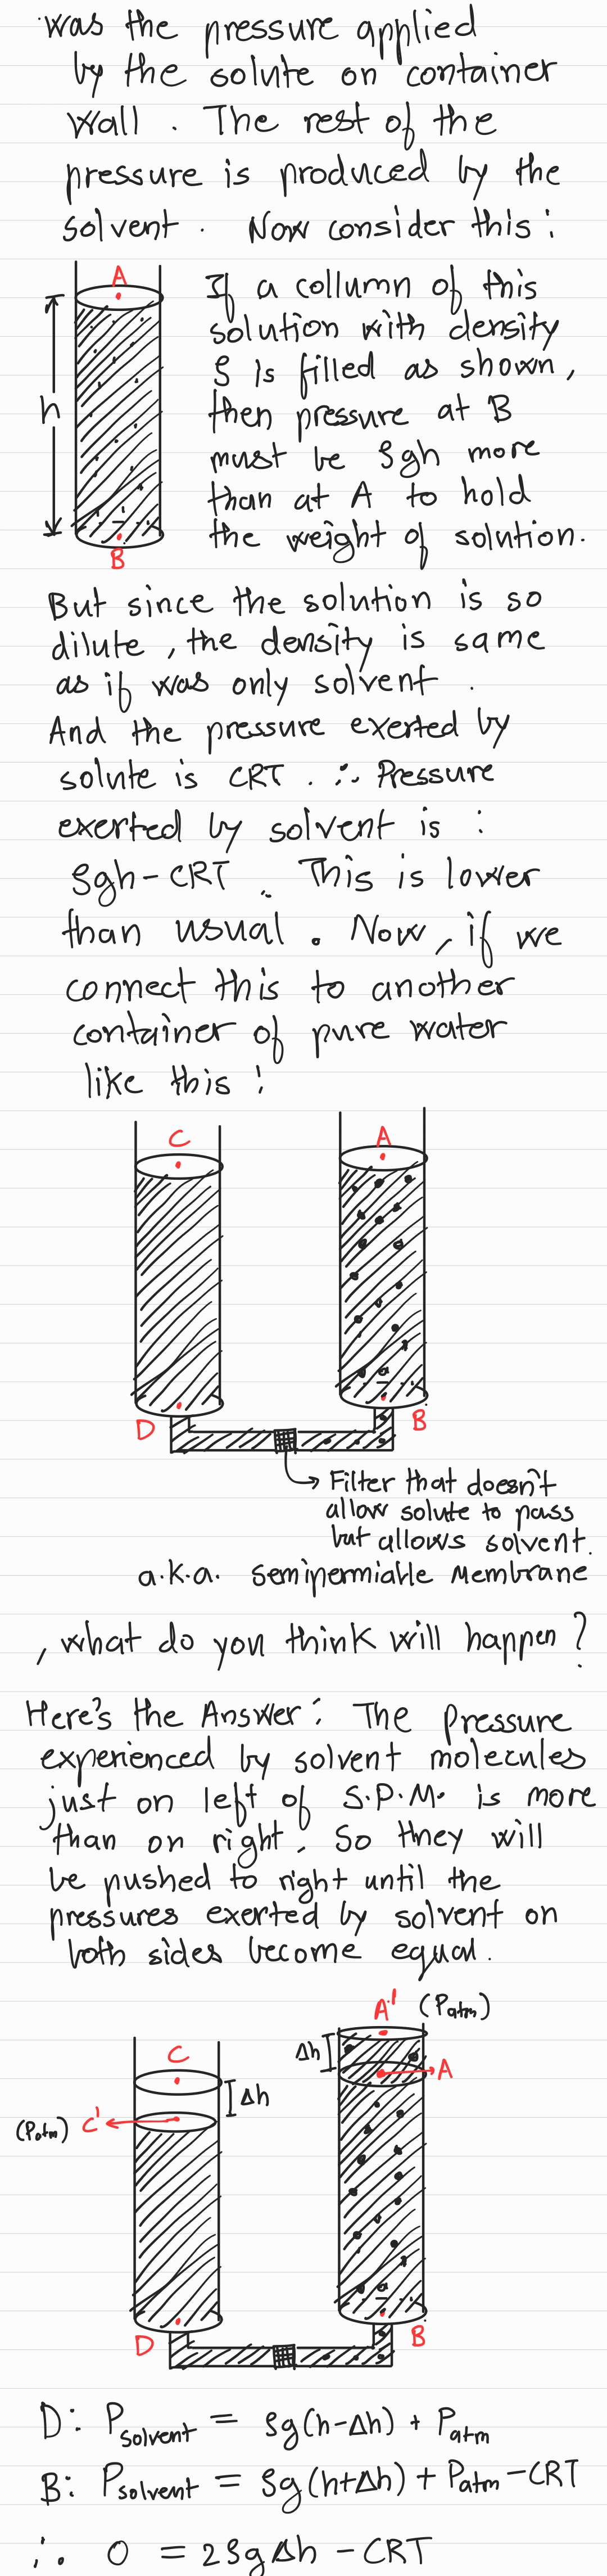 was the pressure applied
by the solute on container
wall. The rest of the
pressure is produced by the
solvent. Now consider this:
A
If a collumn of this
solution with density
ρ is filled as shown,
h
then pressure at B
must be ρgh more
than at A to hold
the weight of solution.
B
But since the solution is so
dilute, the density is same
as if was only solvent.
And the pressure exerted by
solute is CRT. ∴ Pressure
exerted by solvent is:
ρgh-CRT. This is lower
than usual. Now, if we
connect this to another
container of pure water
like this:
C A
D B
Filter that doesn't
allow solute to pass
but allows solvent.
a.k.a. semipermiable Membrane
, what do you think will happen?
Here's the Answer: The pressure
experienced by solvent molecules
just on left of S.P.M. is more
than on right. So they will
be pushed to right until the
pressures exerted by solvent on
both sides become equal.
A' (Patm)
C Δh A
Δh
(Patm) C'
D B
D: Psolvent = ρg(h-Δh) + Patm
B: Psolvent = ρg(h+Δh) + Patm - CRT
∴ 0 = 2ρgΔh - CRT